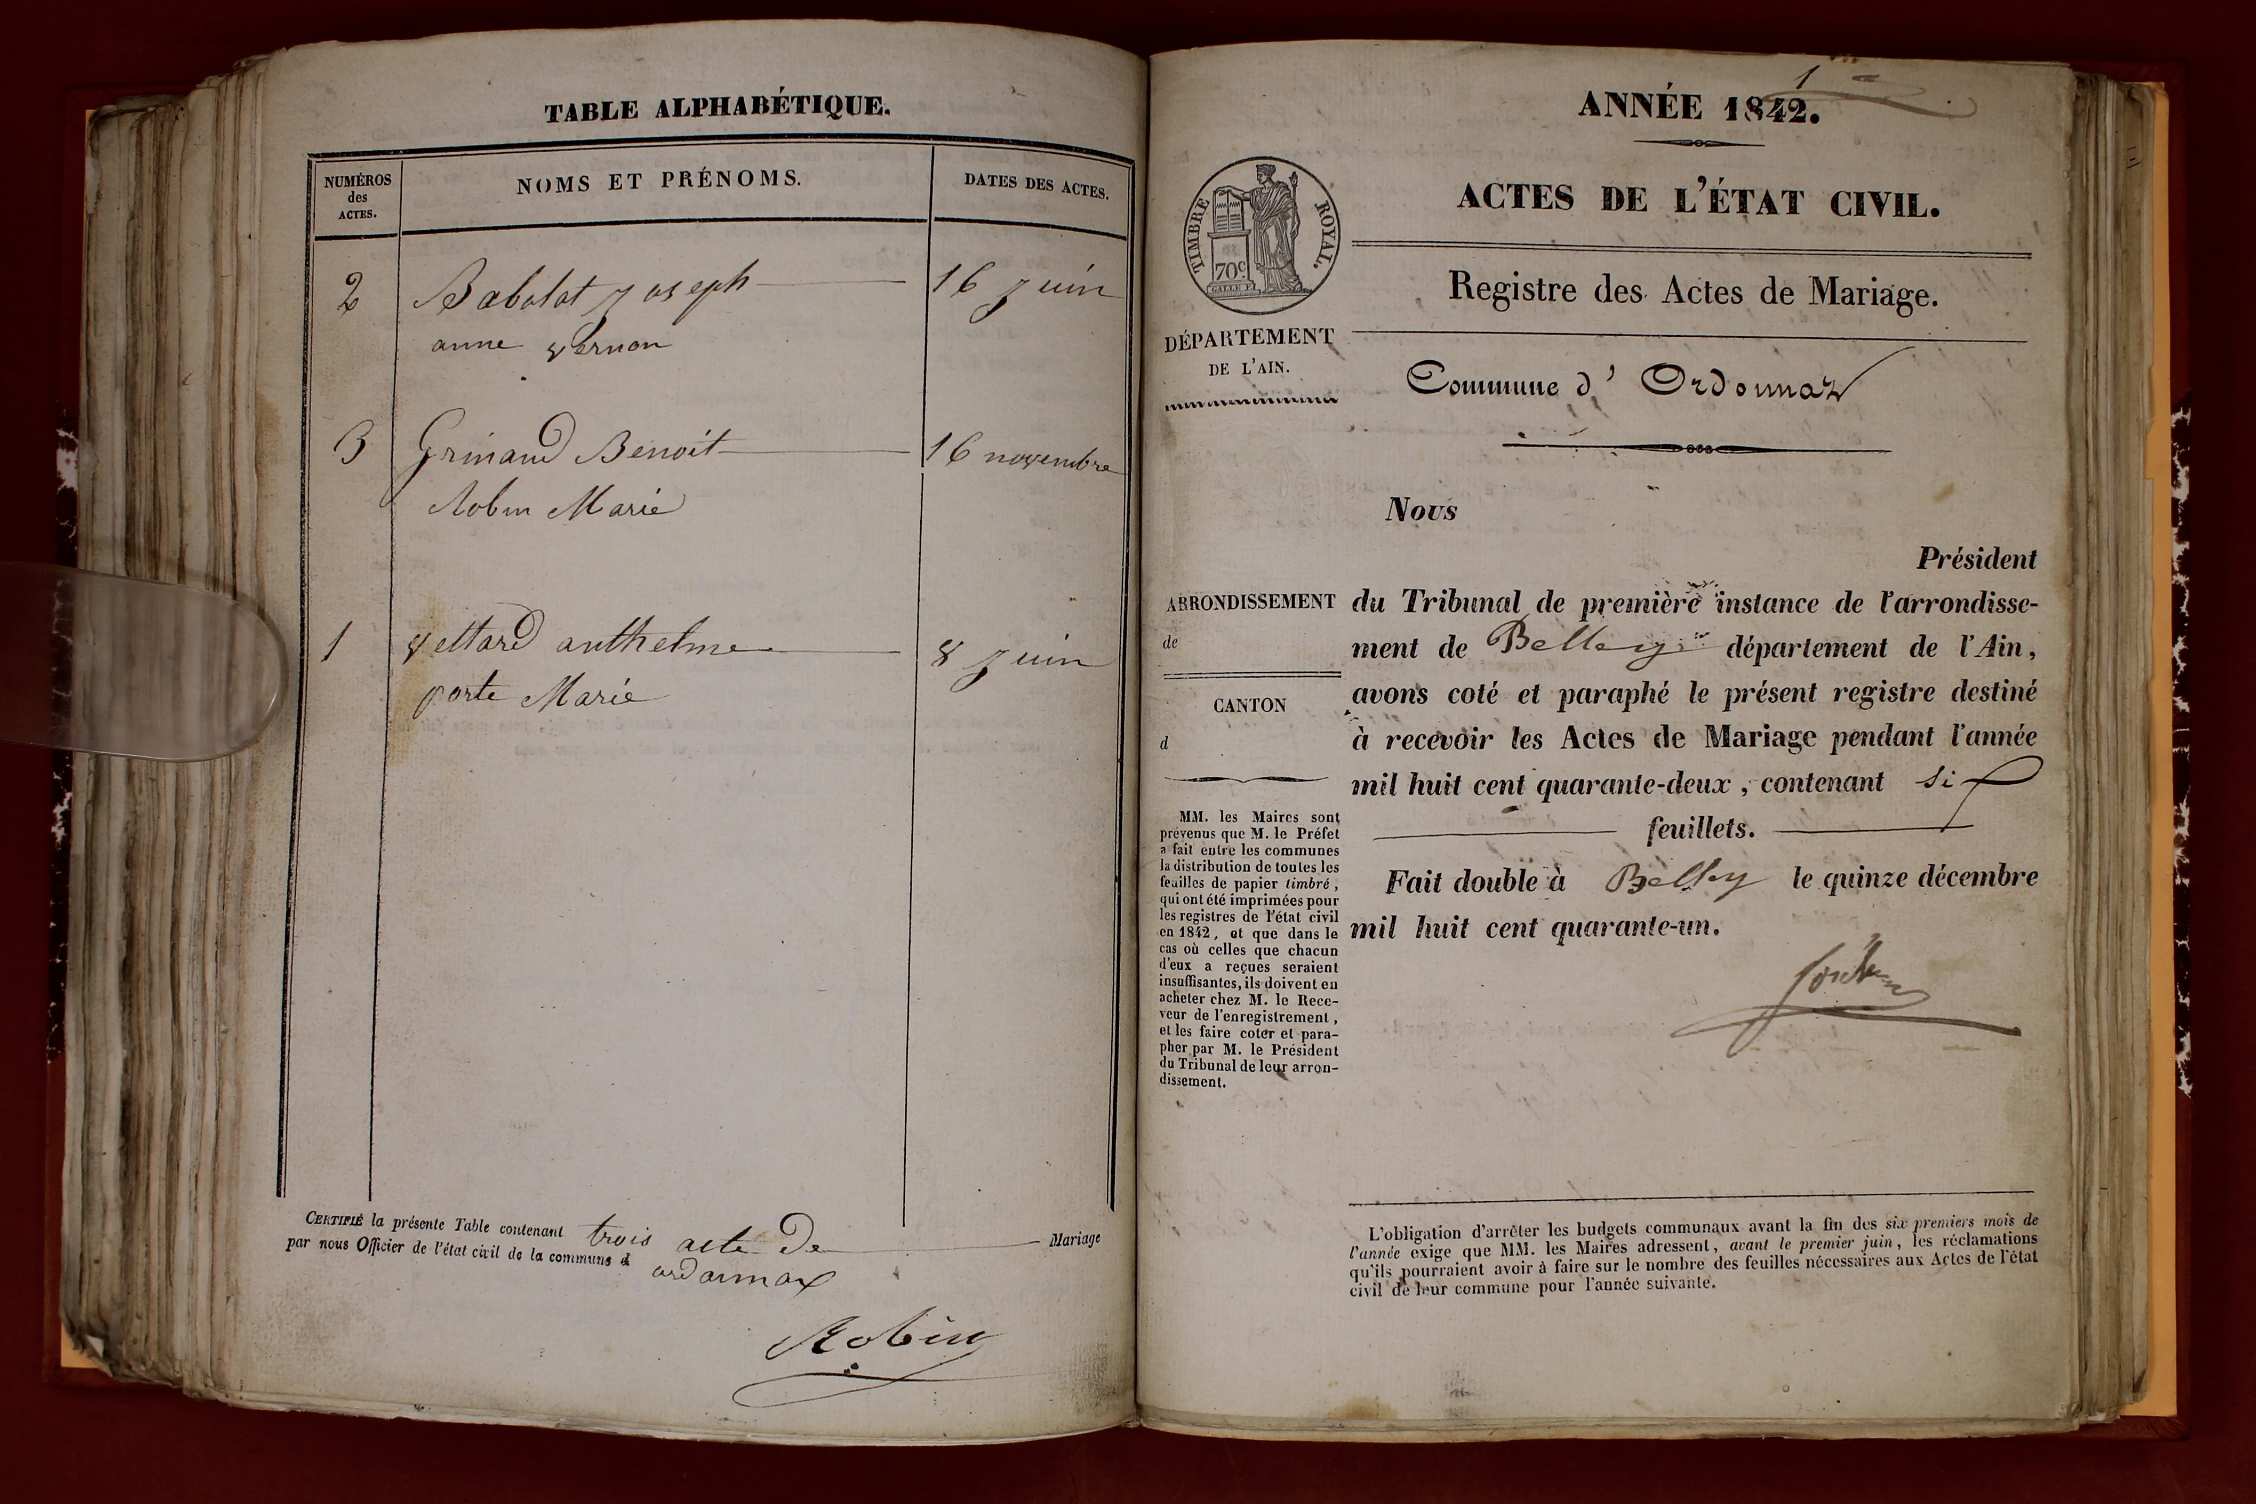 TABLE ALPHABÉTIQUE.
NUMÉROS
des
ACTES.
NOMS ET PRÉNOMS.
DATES DES ACTES.
2 Babolat joseph 16 juin
anne vernon
3 Grinand Benoit 16 novembre
Robin Marie
1 vettard anthelme 8 juin
porte Marie
CERTIFIÉ la présente Table contenant trois acte de Mariage
par nous Officier de l'état civil de la commune d ordonnax
Robin
1
ANNÉE 1842.
ACTES DE L'ÉTAT CIVIL.
TIMBRE ROYAL.
70c
GALLE F.
Registre des Actes de Mariage.
DÉPARTEMENT
DE L'AIN.
Commune d' Ordonnaz
Nous
Président
ARRONDISSEMENT
de
CANTON
d
du Tribunal de première instance de l'arrondisse-
ment de Belley département de l'Ain,
avons coté et paraphé le présent registre destiné
à recevoir les Actes de Mariage pendant l'année
mil huit cent quarante-deux, contenant six
feuillets.
Fait double à Belley le quinze décembre
mil huit cent quarante-un.
MM. les Maires sont
prévenus que M. le Préfet
a fait entre les communes
la distribution de toutes les
feuilles de papier timbré,
qui ont été imprimées pour
les registres de l'état civil
en 1842, et que dans le
cas où celles que chacun
d'eux a reçues seraient
insuffisantes, ils doivent en
acheter chez M. le Rece-
veur de l'enregistrement,
et les faire coter et para-
pher par M. le Président
du Tribunal de leur arron-
dissement.
L'obligation d'arrêter les budgets communaux avant la fin des six premiers mois de
l'année exige que MM. les Maires adressent, avant le premier juin, les réclamations
qu'ils pourraient avoir à faire sur le nombre des feuilles nécessaires aux Actes de l'état
civil de leur commune pour l'année suivante.